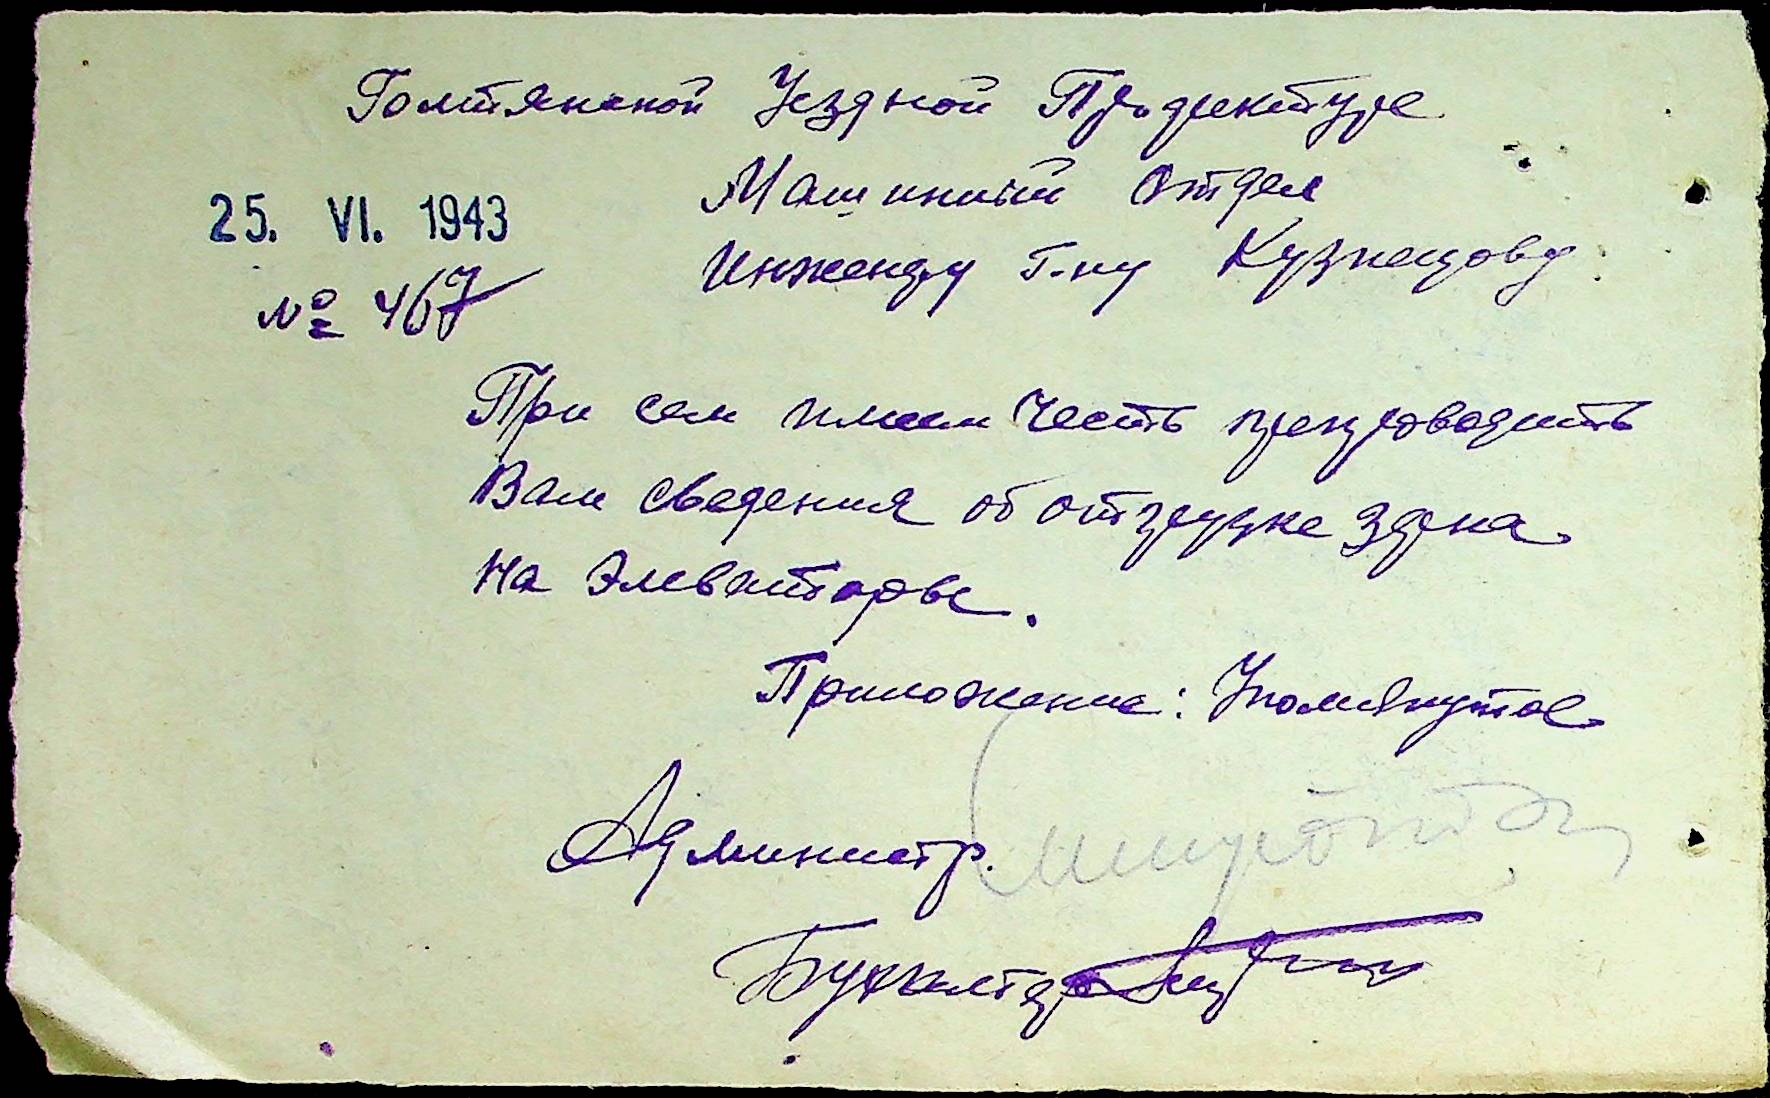 Голтянской Уездной Префектуре
Машинный Отдел
25. VI. 1943
Инженеру Г-ну Кузнецову
№ 467
При сем имеем Честь препроводить
Вам сведения об отгрузке зерна
на Элеваторы.
Приложение: Упомянутое
Администр.
Бухгалтер